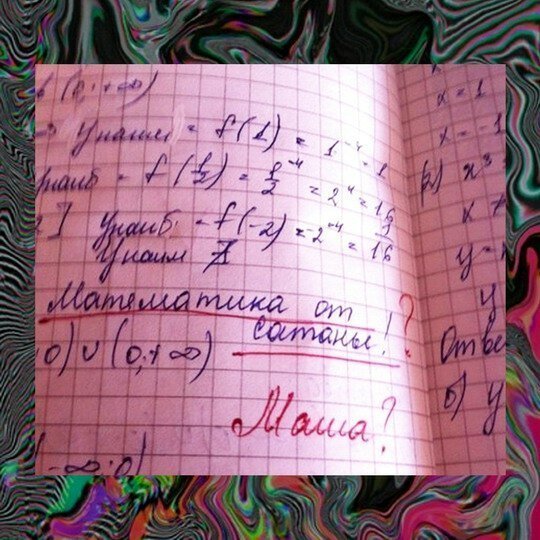 ; +∞)
Yнаим = f(1) = 1⁻⁴ = 1
наиб = f(1/2) = 1/2⁻⁴ = 2⁴ = 16
] Yнаиб. = f(-2) = -2⁻⁴ = 1/16
Yнаим ∄
Математика от
сатаны! ?
0) ∪ (0; +∞)
Маша?
-∞; 0)
x = 1
x = -1
x³
y =
y
Отве
б) y